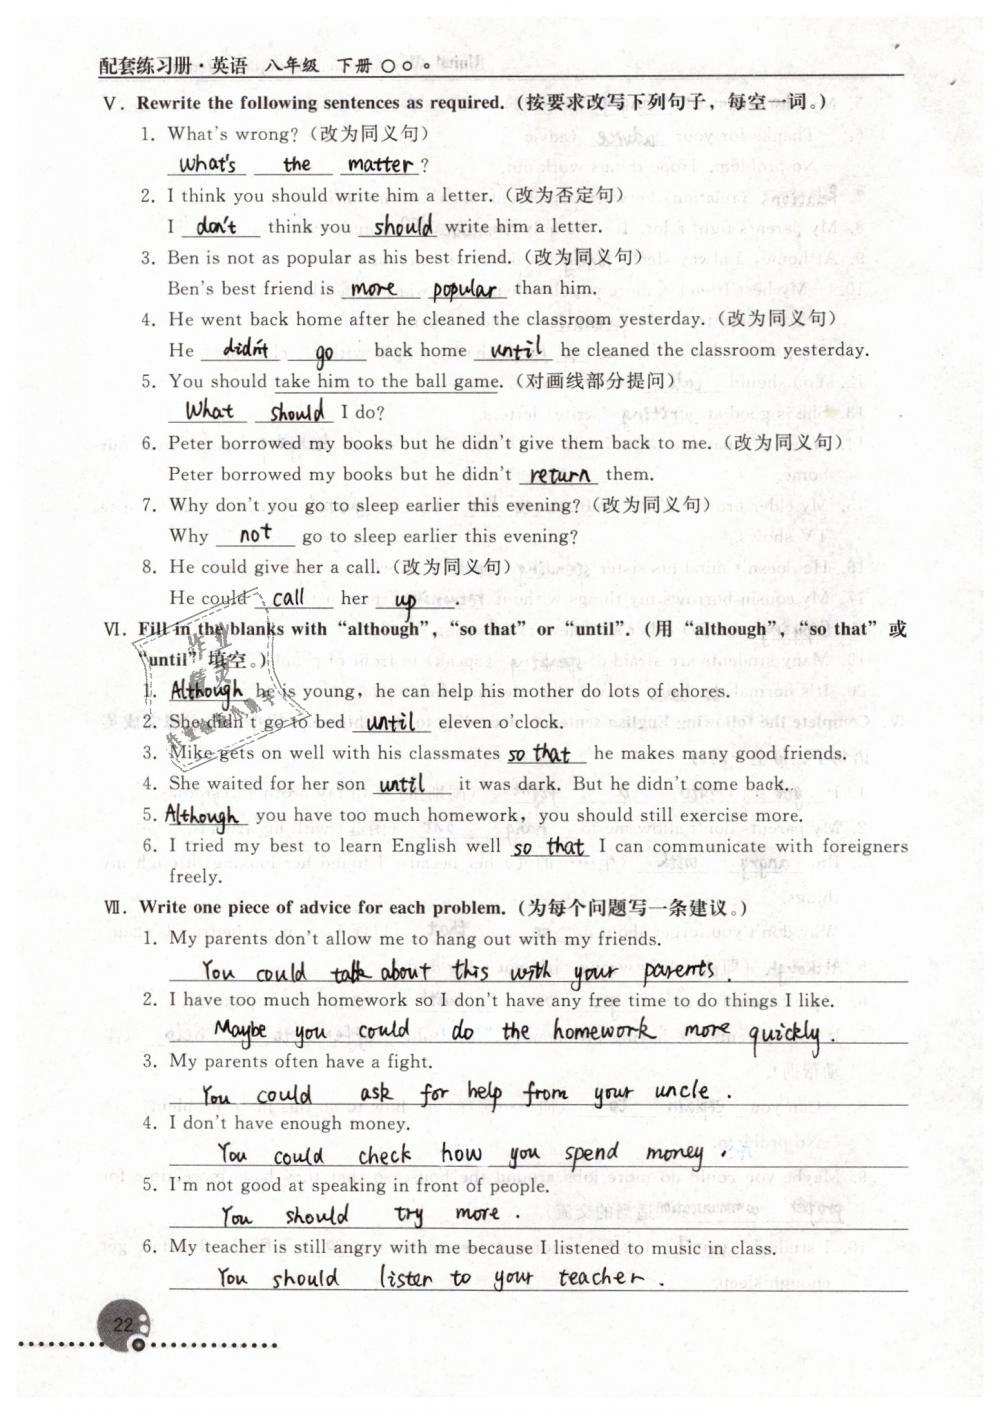 配套练习册·英语 八年级 下册
Ⅴ. Rewrite the following sentences as required. (按要求改写下列句子，每空一词。)
1. What's wrong? (改为同义句)
What's the matter?
2. I think you should write him a letter. (改为否定句)
I don't think you should write him a letter.
3. Ben is not as popular as his best friend. (改为同义句)
Ben's best friend is more popular than him.
4. He went back home after he cleaned the classroom yesterday. (改为同义句)
He didn't go back home until he cleaned the classroom yesterday.
5. You should take him to the ball game. (对画线部分提问)
What should I do?
6. Peter borrowed my books but he didn't give them back to me. (改为同义句)
Peter borrowed my books but he didn't return them.
7. Why don't you go to sleep earlier this evening? (改为同义句)
Why not go to sleep earlier this evening?
8. He could give her a call. (改为同义句)
He could call her up.
Ⅵ. Fill in the blanks with "although", "so that" or "until". (用 "although", "so that" 或
"until" 填空。)
1. Although he is young, he can help his mother do lots of chores.
2. She didn't go to bed until eleven o'clock.
3. Mike gets on well with his classmates so that he makes many good friends.
4. She waited for her son until it was dark. But he didn't come back.
5. Although you have too much homework, you should still exercise more.
6. I tried my best to learn English well so that I can communicate with foreigners
freely.
Ⅶ. Write one piece of advice for each problem. (为每个问题写一条建议。)
1. My parents don't allow me to hang out with my friends.
You could talk about this with your parents.
2. I have too much homework so I don't have any free time to do things I like.
Maybe you could do the homework more quickly.
3. My parents often have a fight.
You could ask for help from your uncle.
4. I don't have enough money.
You could check how you spend money.
5. I'm not good at speaking in front of people.
You should try more.
6. My teacher is still angry with me because I listened to music in class.
You should listen to your teacher.
22